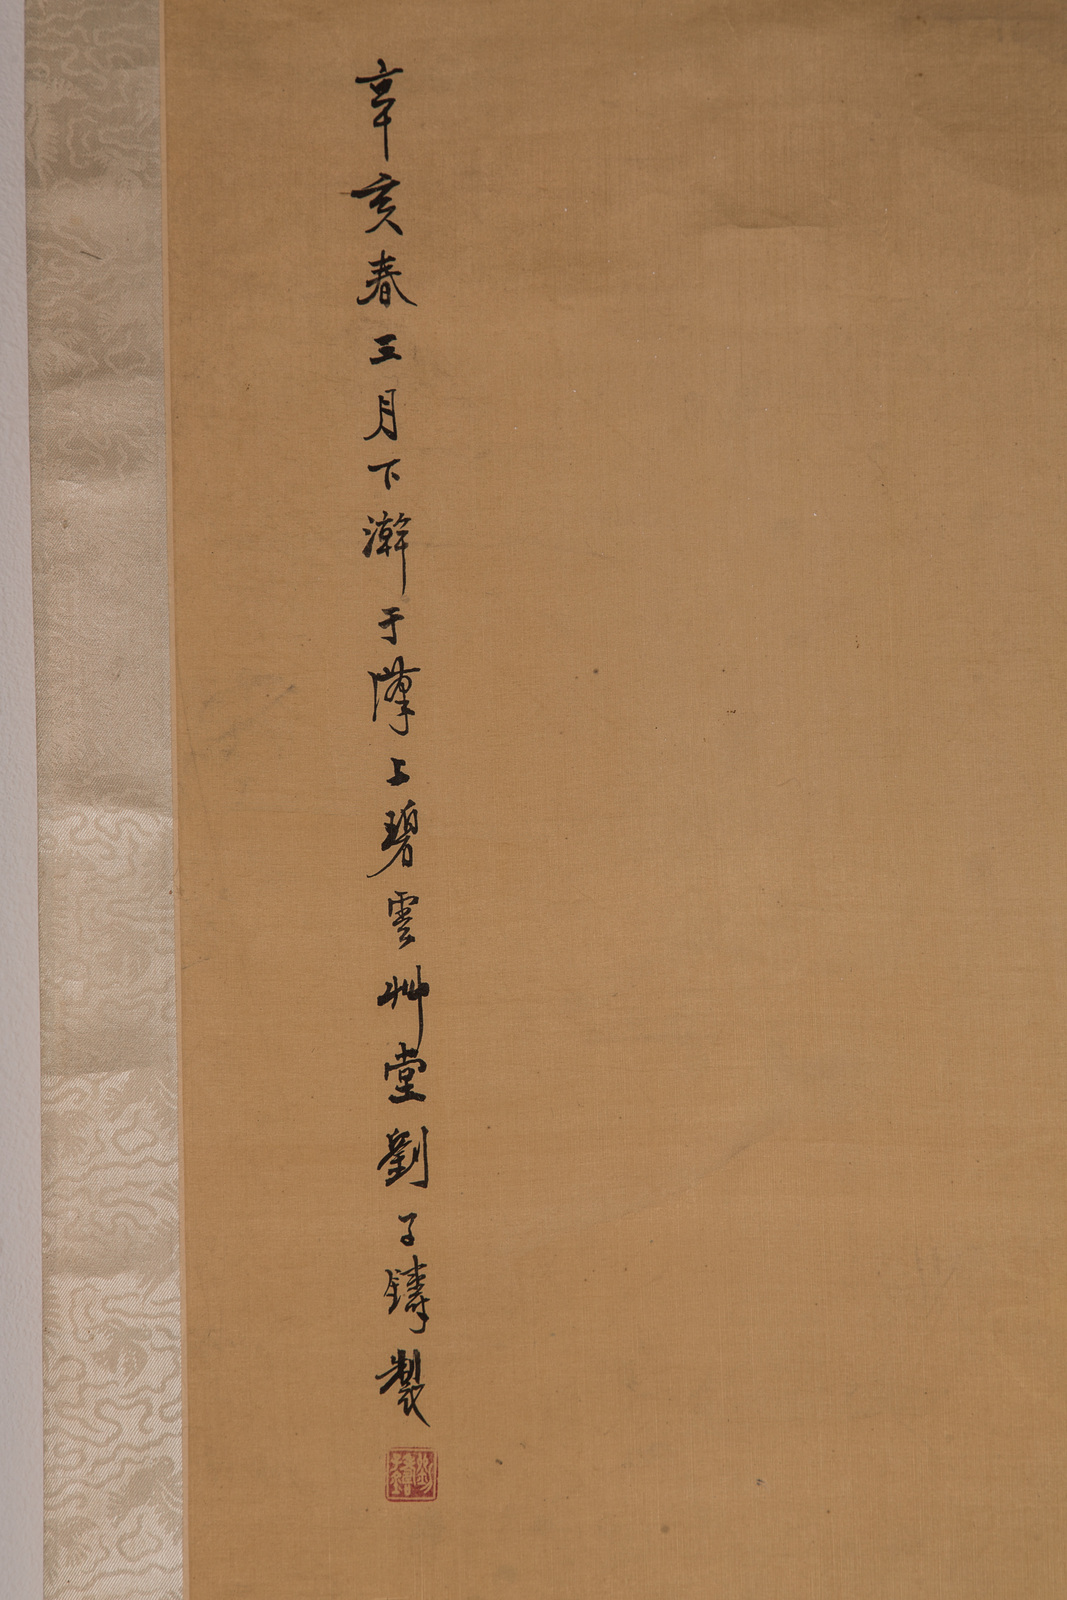 辛亥春三月下澣于漢上碧雲艸堂劉子鑄製
劉子鑄